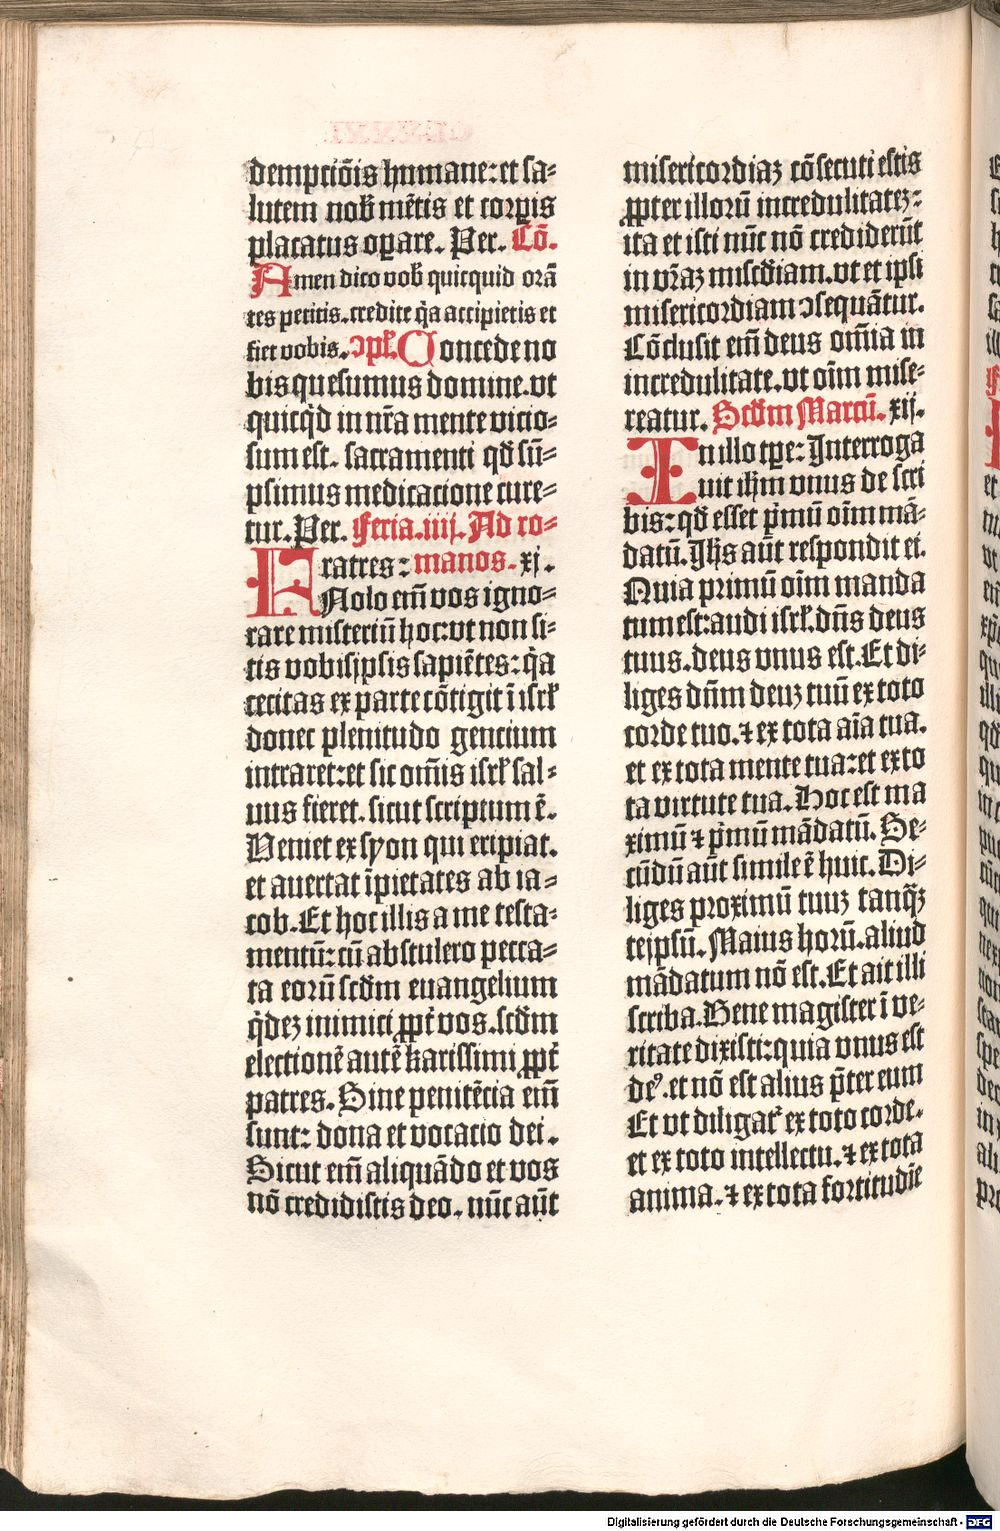 dempciōis humane: et sa⸗
lutem nob̄ mētis et corꝑis
placatus oꝑare. Per. Cō.
Amen dico vob̄ quicquid orā
tes petitis. credite q̄a accipietis et
fiet vobis. ↄpl̄. Concede no
bis quesumus domine. vt
quicq̄d in nr̄a mente vicio⸗
sum est. sacramenti qd̄ sū⸗
psimus medicacione cure⸗
tur. Per. Feria. iiij. Ad ro⸗
Fratres: manos. xj.
Nolo em̄ vos igno⸗
rare misteriū hoc: vt non si⸗
tis vobisipsis sapiētes: q̄a
cecitas ex parte cōtigit ī isrl̄
donec plenitudo gencium
intraret: et sic om̄is isrl̄ sal⸗
uus fieret. sicut scriptum ē.
Veniet ex syon qui eripiat.
et auertat īpietates ab ia⸗
cob. Et hoc illis a me testa⸗
mentū: cū abstulero pecca⸗
ta eorū scd̄m euangelium
q̄deꝫ inimici ꝓpt̄ vos. scd̄m
electionē autē karissimi ꝓpt̄
patres. Sine penitēcia em̄
sunt: dona et vocacio dei.
Sicut em̄ aliquādo et vos
nō credidistis deo. nūc aūt
misericordiaꝫ cōsecuti estis
ꝓpter illorū incredulitateꝫ:
ita et isti nūc nō crediderūt
in vr̄aꝫ miscd̄iam. vt et ipsi
misericordiam ↄsequātur.
Cōclusit em̄ deus om̄ia in
incredulitate. vt oīm mise⸗
reatur. Scd̄m Marcū. xij.
In illo tp̄e: Interroga
uit ih̄m vnus de scri
bis: qd̄ esset p̄mū oīm mā⸗
datū. Jh̄s aūt respondit ei.
Quia primū oīm manda
tum est: audi isrl̄. dn̄s deus
tuus. deus vnus est. Et di⸗
liges dn̄m deuꝫ tuū ex toto
corde tuo. ⁊ ex tota aīa tua.
et ex tota mente tua: et ex to
ta virtute tua. Hoc est ma
ximū ⁊ p̄mū mādatū. Se⸗
cūdū aūt simile ē huic. Di⸗
liges proximū tuuꝫ tanq̄ꝫ
teipsū. Maius horū. aliud
mādatum nō est. Et ait illi
scriba. Bene magister ī ve⸗
ritate dixisti: quia vnus est
deꝰ. et nō est alius p̄ter eum
Et vt diligat᷑ ex toto corde.
et ex toto intellectu. ⁊ ex tota
anima. ⁊ ex tota fortitudīe
Digitalisierung gefördert durch die Deutsche Forschungsgemeinschaft - DFG